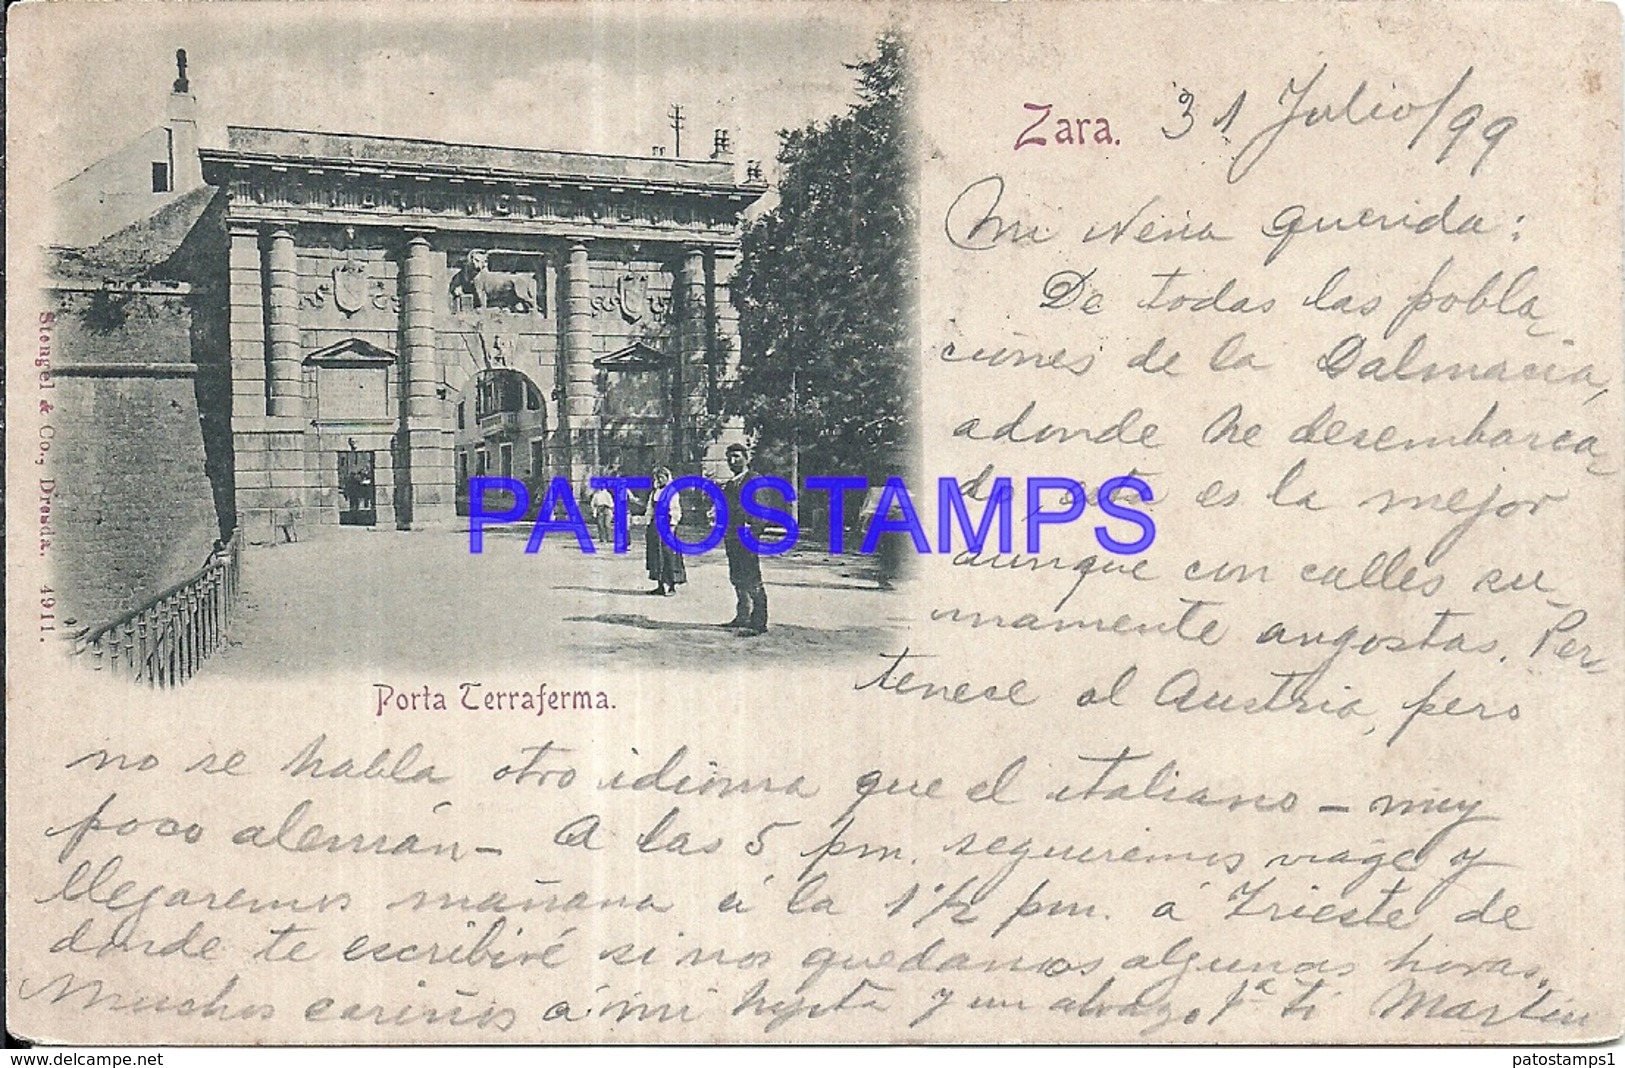 Zara. 31 Julio/99
Mi Nena querida:
De todas las pobla-
ciones de la Dalmacia,
adonde he desembarca-
do, esta es la mejor
aunque con calles su-
mamente angostas. Per-
tenece al Austria, pero
no se habla otro idioma que el italiano - muy
poco alemán - A las 5 pm. seguiremos viage y
llegaremos mañana á la 1 1/2 pm. á Trieste de
donde te escribiré si nos quedamos algunas horas.
Muchos cariños á mi hijita y un abrazo pª ti Martin
Porta Terraferma.
Stengel & Co., Dresda. 4911.
PATOSTAMPS
patostamps1